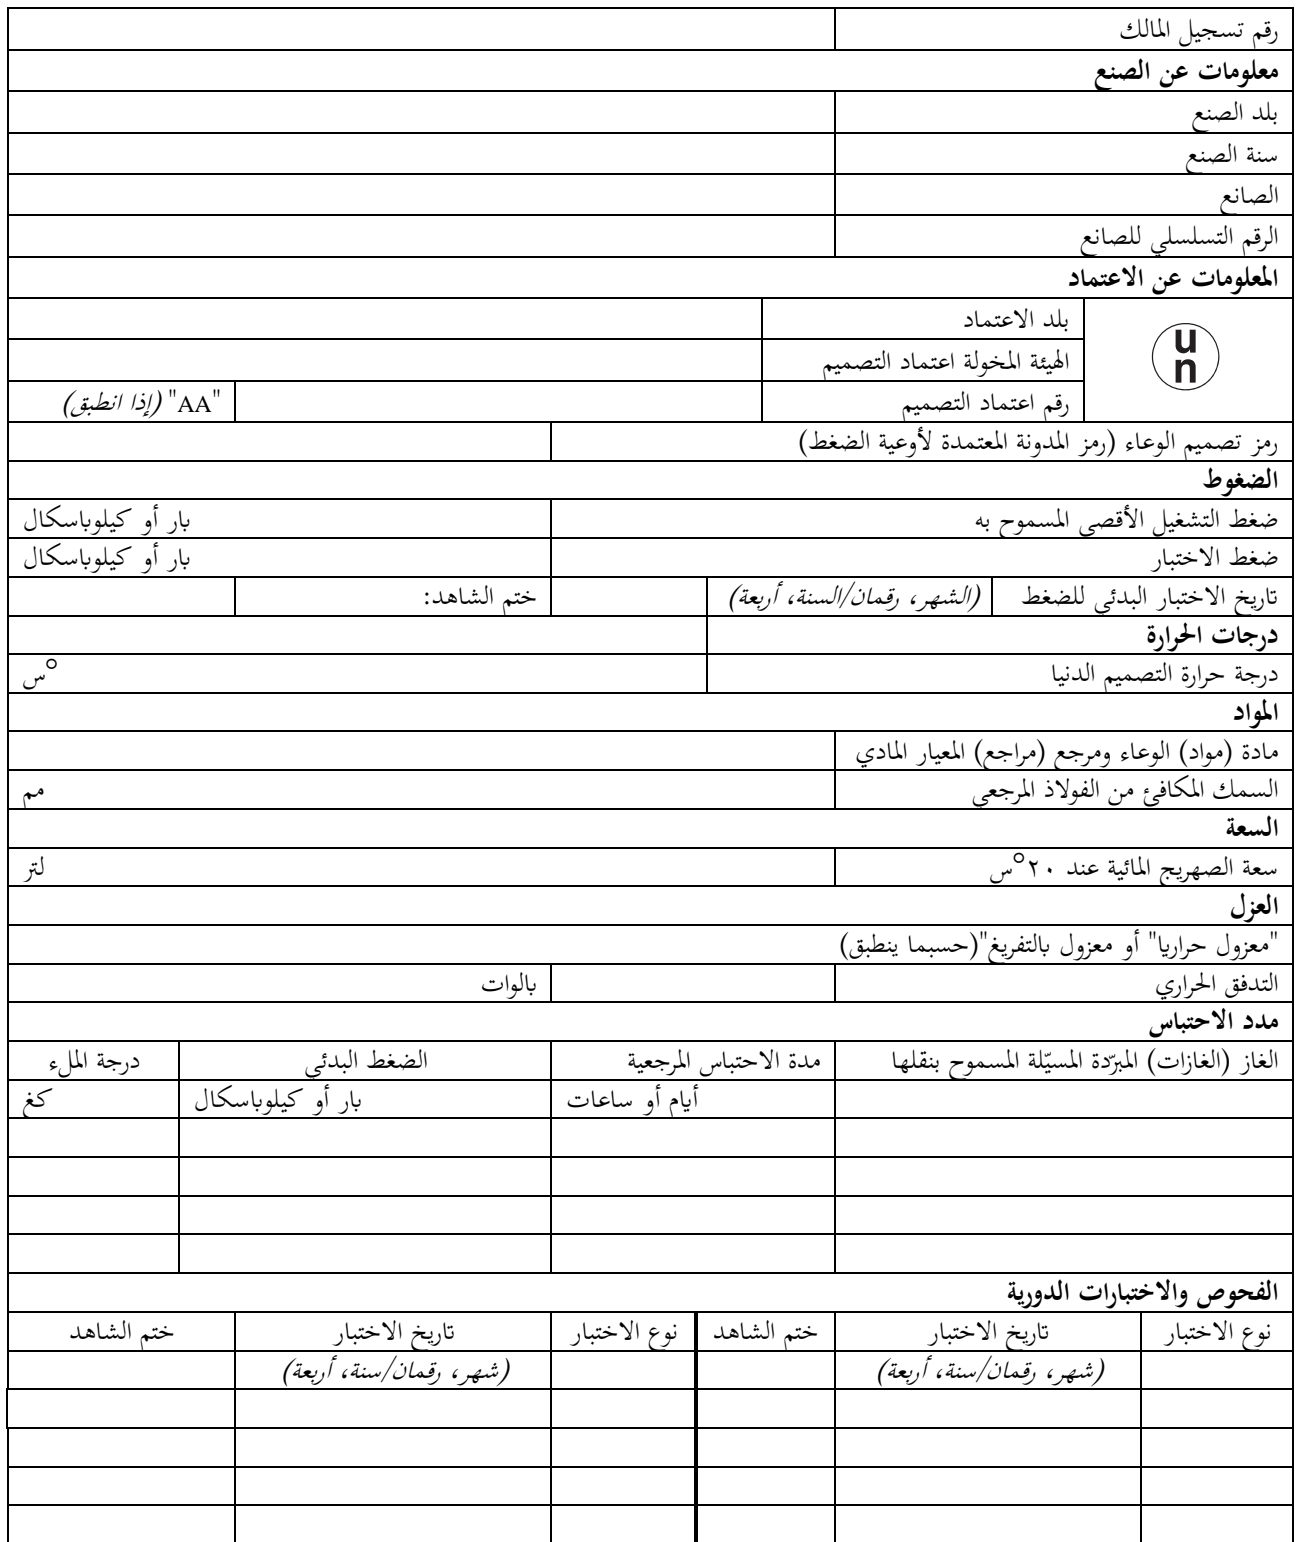 رقم تسجيل المالك
معلومات عن الصنع
بلد الصنع
سنة الصنع
الصانع
الرقم التسلسلي للصانع
المعلومات عن الاعتماد
un
بلد الاعتماد
الهيئة المخولة اعتماد التصميم
رقم اعتماد التصميم "AA" (إذا انطبق)
رمز تصميم الوعاء (رمز المدونة المعتمدة لأوعية الضغط)
الضغوط
ضغط التشغيل الأقصى المسموح به بار أو كيلوباسكال
ضغط الاختبار بار أو كيلوباسكال
تاريخ الاختبار البدئي للضغط (الشهر، رقمان/السنة، أربعة) ختم الشاهد:
درجات الحرارة
درجة حرارة التصميم الدنيا °س
المواد
مادة (مواد) الوعاء ومرجع (مراجع) المعيار المادي
السمك المكافئ من الفولاذ المرجعي مم
السعة
سعة الصهريج المائية عند ٢٠°س لتر
العزل
"معزول حراريا" أو معزول بالتفريغ"(حسبما ينطبق)
التدفق الحراري بالوات
مدد الاحتباس
الغاز (الغازات) المبرّدة المسيّلة المسموح بنقلها مدة الاحتباس المرجعية الضغط البدئي درجة الملء
أيام أو ساعات بار أو كيلوباسكال كغ
الفحوص والاختبارات الدورية
نوع الاختبار تاريخ الاختبار ختم الشاهد نوع الاختبار تاريخ الاختبار ختم الشاهد
(شهر، رقمان/سنة، أربعة) (شهر، رقمان/سنة، أربعة)